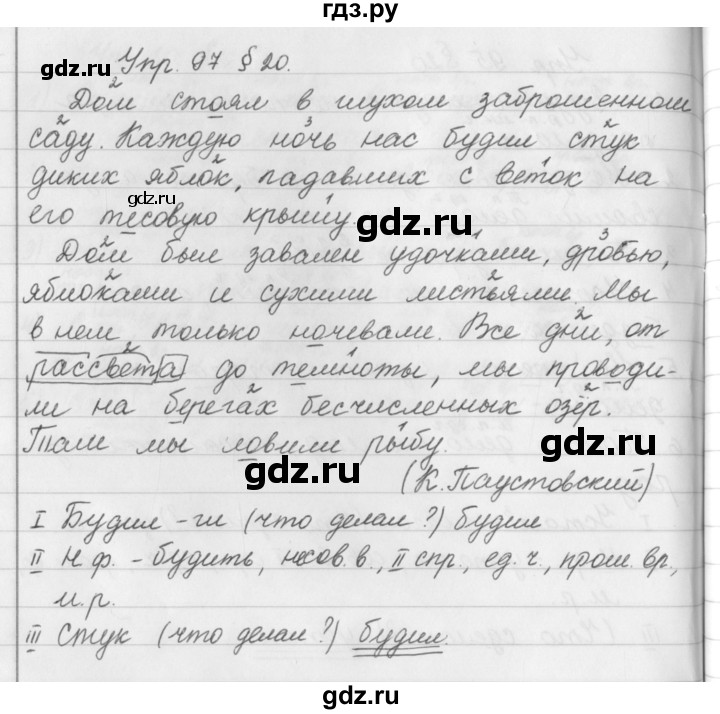 гдз.ру
Упр. 97 § 20.
Дом стоял в глухом заброшенном
саду. Каждую ночь нас будил стук
диких яблок, падавших с веток на
его тесовую крышу.
Дом был завален удочками, дробью,
яблоками и сухими листьями. Мы
в нем только ночевали. Все дни, от
рассвета до темноты, мы проводи-
ли на берегах бесчисленных озёр.
Там мы ловили рыбу.
(К. Паустовский)
I Будил - гл (что делал?) будил
II Н.ф. - будить, несов. в., II спр., ед. ч., прош. вр.,
м. р.
III Стук (что делал?) будил.
gdz.ru
gdz.ru
gdz.ru
gdz.ru
gdz.ru
gdz.ru
gdz.ru
gdz.ru